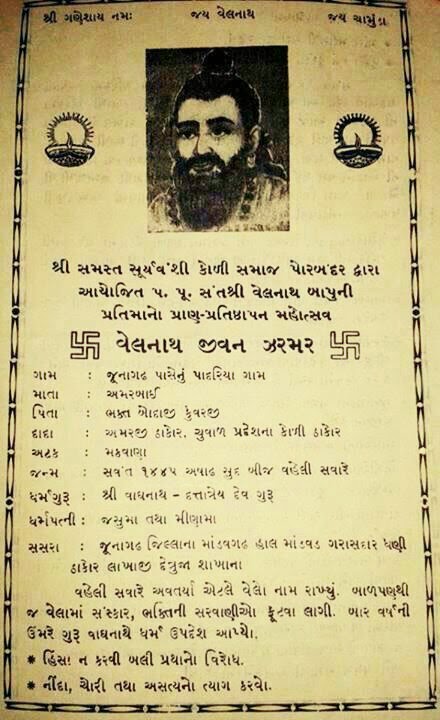 શ્રી ગણેશાય નમઃ જય વેલનાથ જય ચામુંડા
શ્રી સમસ્ત સૂર્યવંશી કોળી સમાજ પોરબંદર દ્વારા
આયોજિત પ. પૂ. સંતશ્રી વેલનાથ બાપુની
પ્રતિમાનો પ્રાણ-પ્રતિષ્ઠાપન મહોત્સવ
વેલનાથ જીવન ઝરમર
ગામ : જૂનાગઢ પાસેનું પાદરિયા ગામ
માતા : અમરબાઈ
પિતા : ભક્ત ખોદાજી કુંવરજી
દાદા : અમરજી ઠાકોર, ચુવાળ પ્રદેશના કોળી ઠાકોર
અટક : મકવાણા
જન્મ : સવંત ૧૪૪૫ અષાઢ સુદ બીજ વહેલી સવારે
ધર્મગુરૂ : શ્રી વાઘનાથ – દત્તાત્રેય દેવ ગુરૂ
ધર્મપત્ની : જસુમા તથા મીણામા
સસરા : જૂનાગઢ જિલ્લાના માંડવગઢ હાલ માંડવડ ગરાસદાર ધણી
ઠાકોર લાખાજી દેત્રુજા શાખાના
વહેલી સવારે અવતર્યા એટલે વેલો નામ રાખ્યું. બાળપણથી
જ વેલામાં સંસ્કાર, ભક્તિની સરવાણીઓ ફૂટવા લાગી. બાર વર્ષની
ઉંમરે ગુરૂ વાઘનાથે ધર્મ ઉપદેશ આપ્યો.
* હિંસા ન કરવી બલી પ્રથાનો વિરોધ.
* નીંદા, ચોરી તથા અસત્યનો ત્યાગ કરવો.